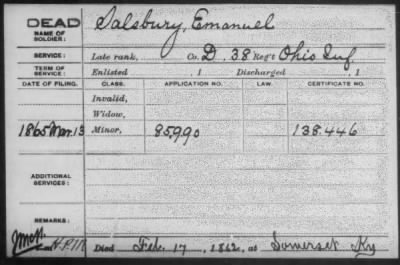 DEAD
NAME OF SOLDIER: Salsbury, Emanuel
SERVICE: Late rank, Co. D, 38 Reg't Ohio Inf.
TERM OF SERVICE: Enlisted , 1 Discharged , 1
DATE OF FILING. CLASS. APPLICATION NO. LAW. CERTIFICATE NO.
Invalid,
Widow,
1865 Mar. 13 Minor, 85.990 138.446
ADDITIONAL SERVICES:
REMARKS:
Died Feb. 17, 1862, at Somerset Ky